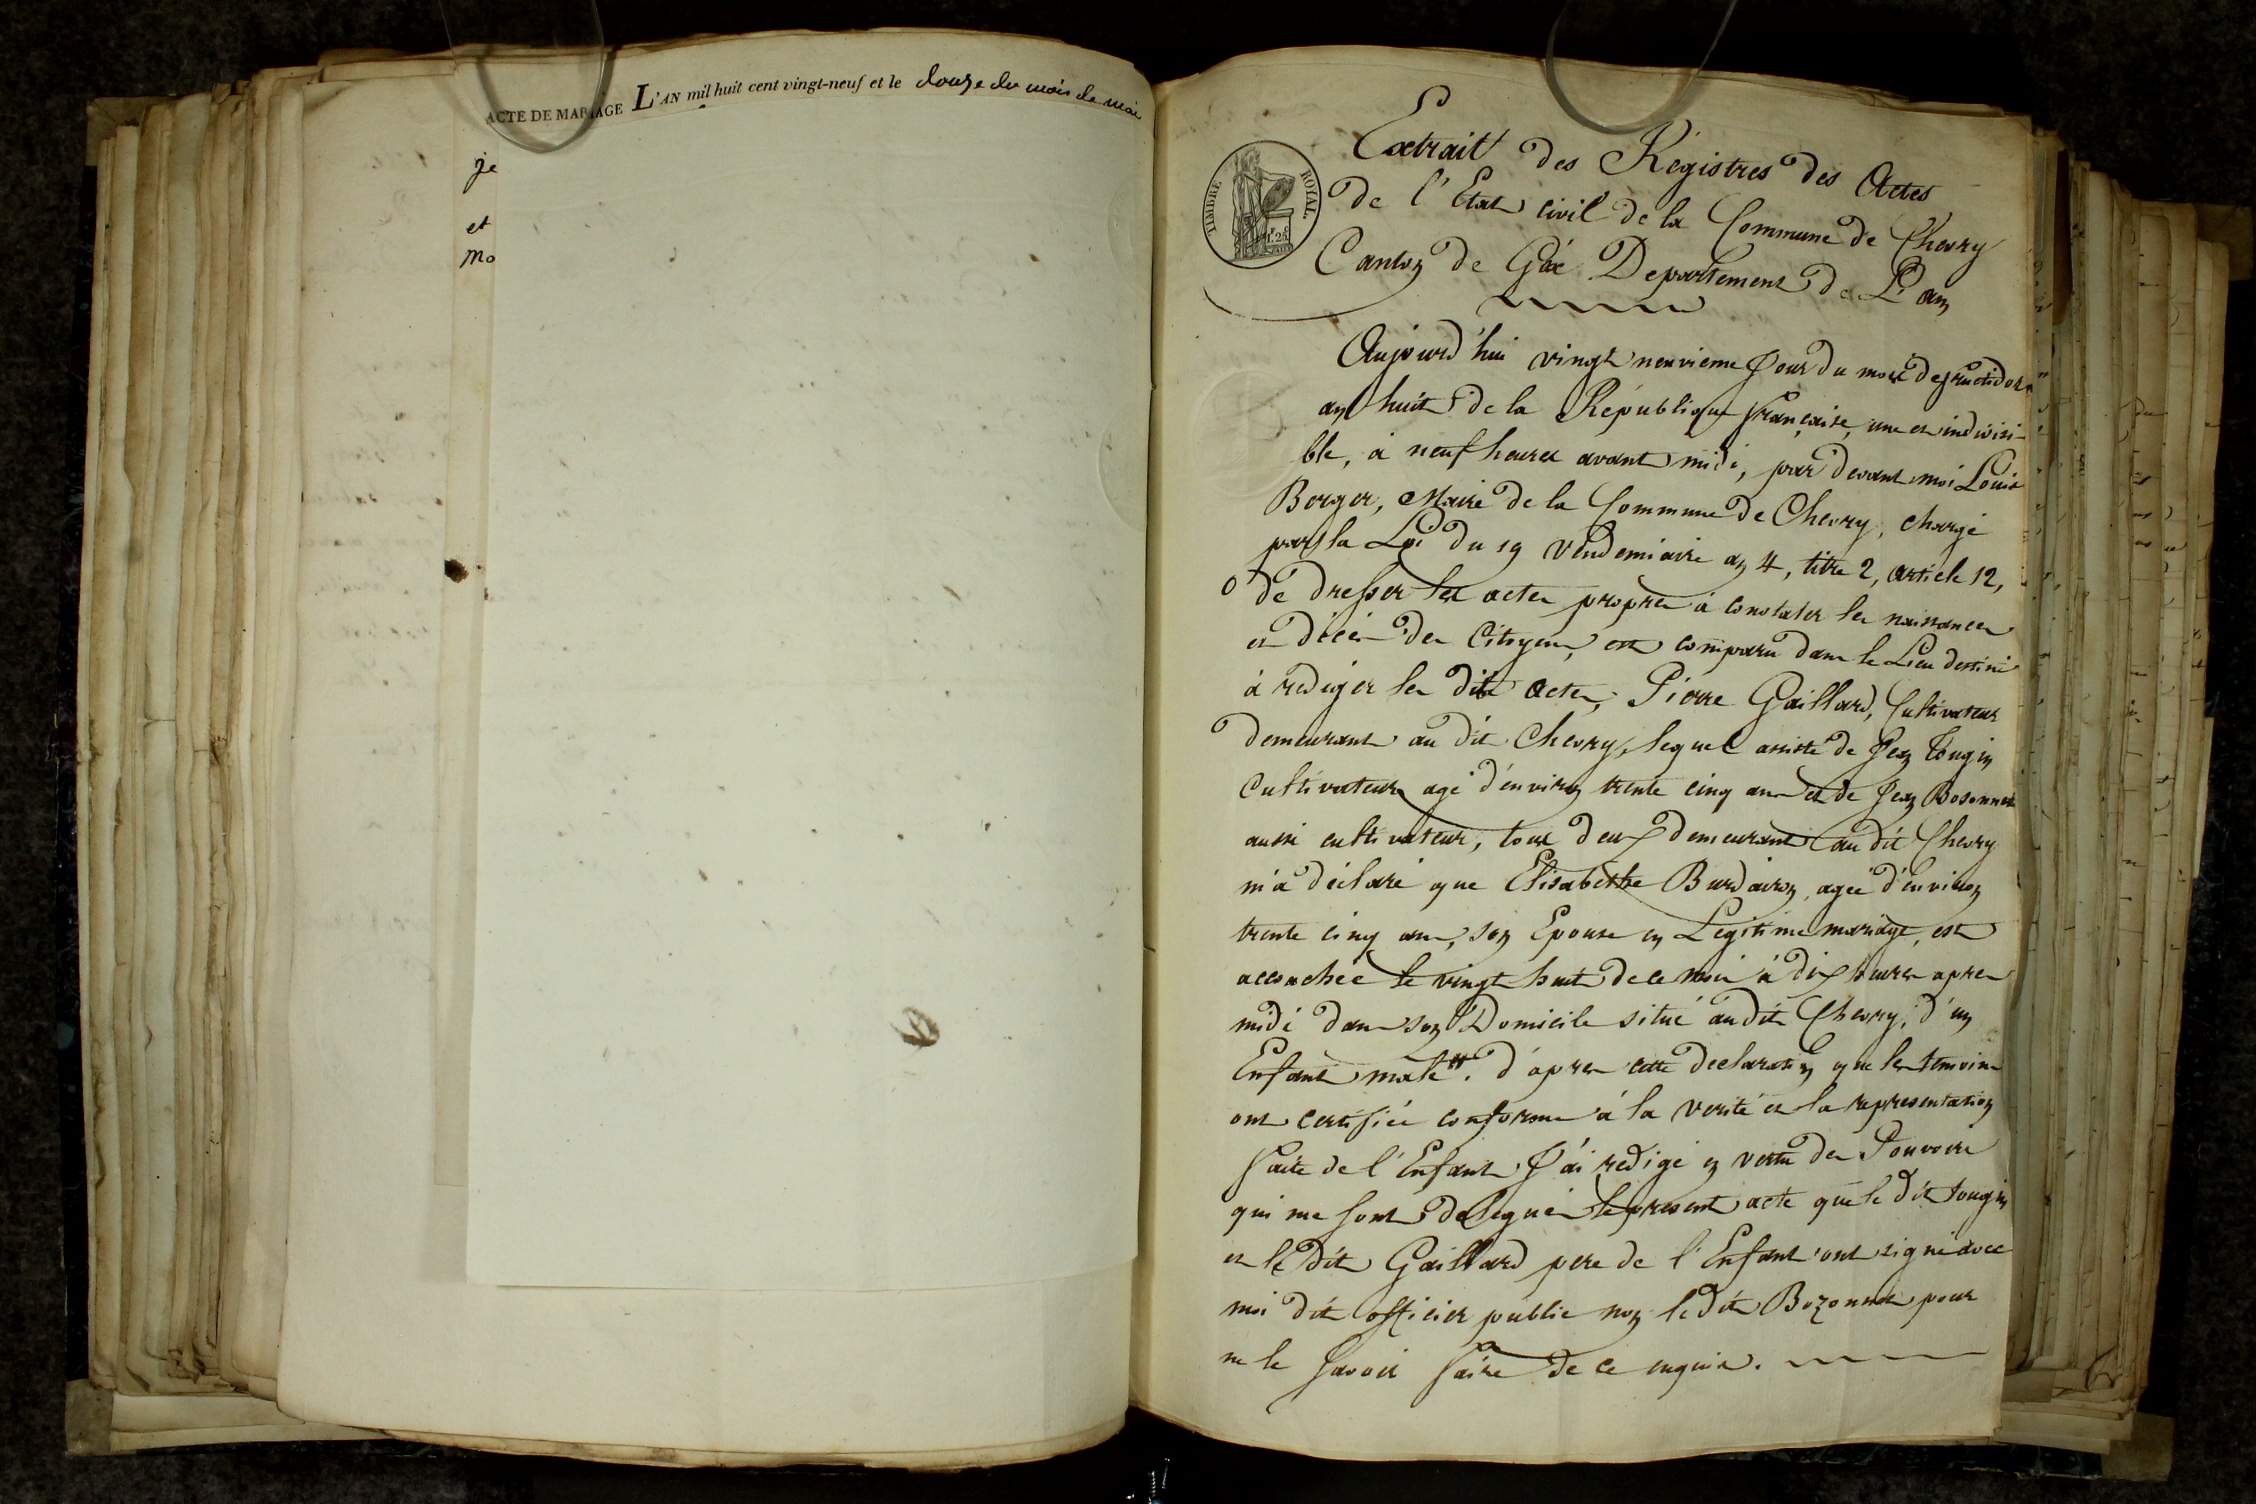 ACTE DE MARIAGE L'AN mil huit cent vingt-neuf et le douze du mois de mai
je
et
mo
Extrait des Régistres des Actes
TIMBRE ROYAL.
de l'Etat civil de la Commune de Chevry
Canton de Géx Departement de L'ain
Aujourd'hui vingt neuvieme Jour du mois de fructidor
an huit de la République française, une et indivisi-
ble, à neuf heures avant midi, par devant moi Louis
Berger, Maire de la Commune de Chevry, chargé
par la Loi du 19 Vendemiaire an 4, titre 2, article 12,
de dresser les actes propres à constater les naissances
et décès des Citoyens, est comparu dans le Lieu destiné
à rediger les dits actes, Pierre Gaillard, Cultivateur
demeurant au dit Chevry, lequel assisté de Jean Tougin
Cultivateur agé d'environ trente cinq ans et de Jean Bosonnet
aussi cultivateur, tous deux demeurant au dit Chevry
m'a déclaré que Elisabethe Burdairon, agée d'environ
trente cinq ans, son Epouse en Légitime mariage, est
accouchée le vingt huit de ce mois à dix heures apres
midi dans son Domicile situé au dit Chevry, d'un
Enfant male #. d'apres cette declaration que les témoins
ont certifiée conforme à la verité et la representation
faite de l'Enfant J'ai redigé en vertu des Pouvoirs
qui me sont delegués le present acte que le dit tougin
et le dit Gaillard pere de l'Enfant ont signé avec
moi dit officier public non le dit Bozonnet pour
ne le savoir faire de ce enquis.